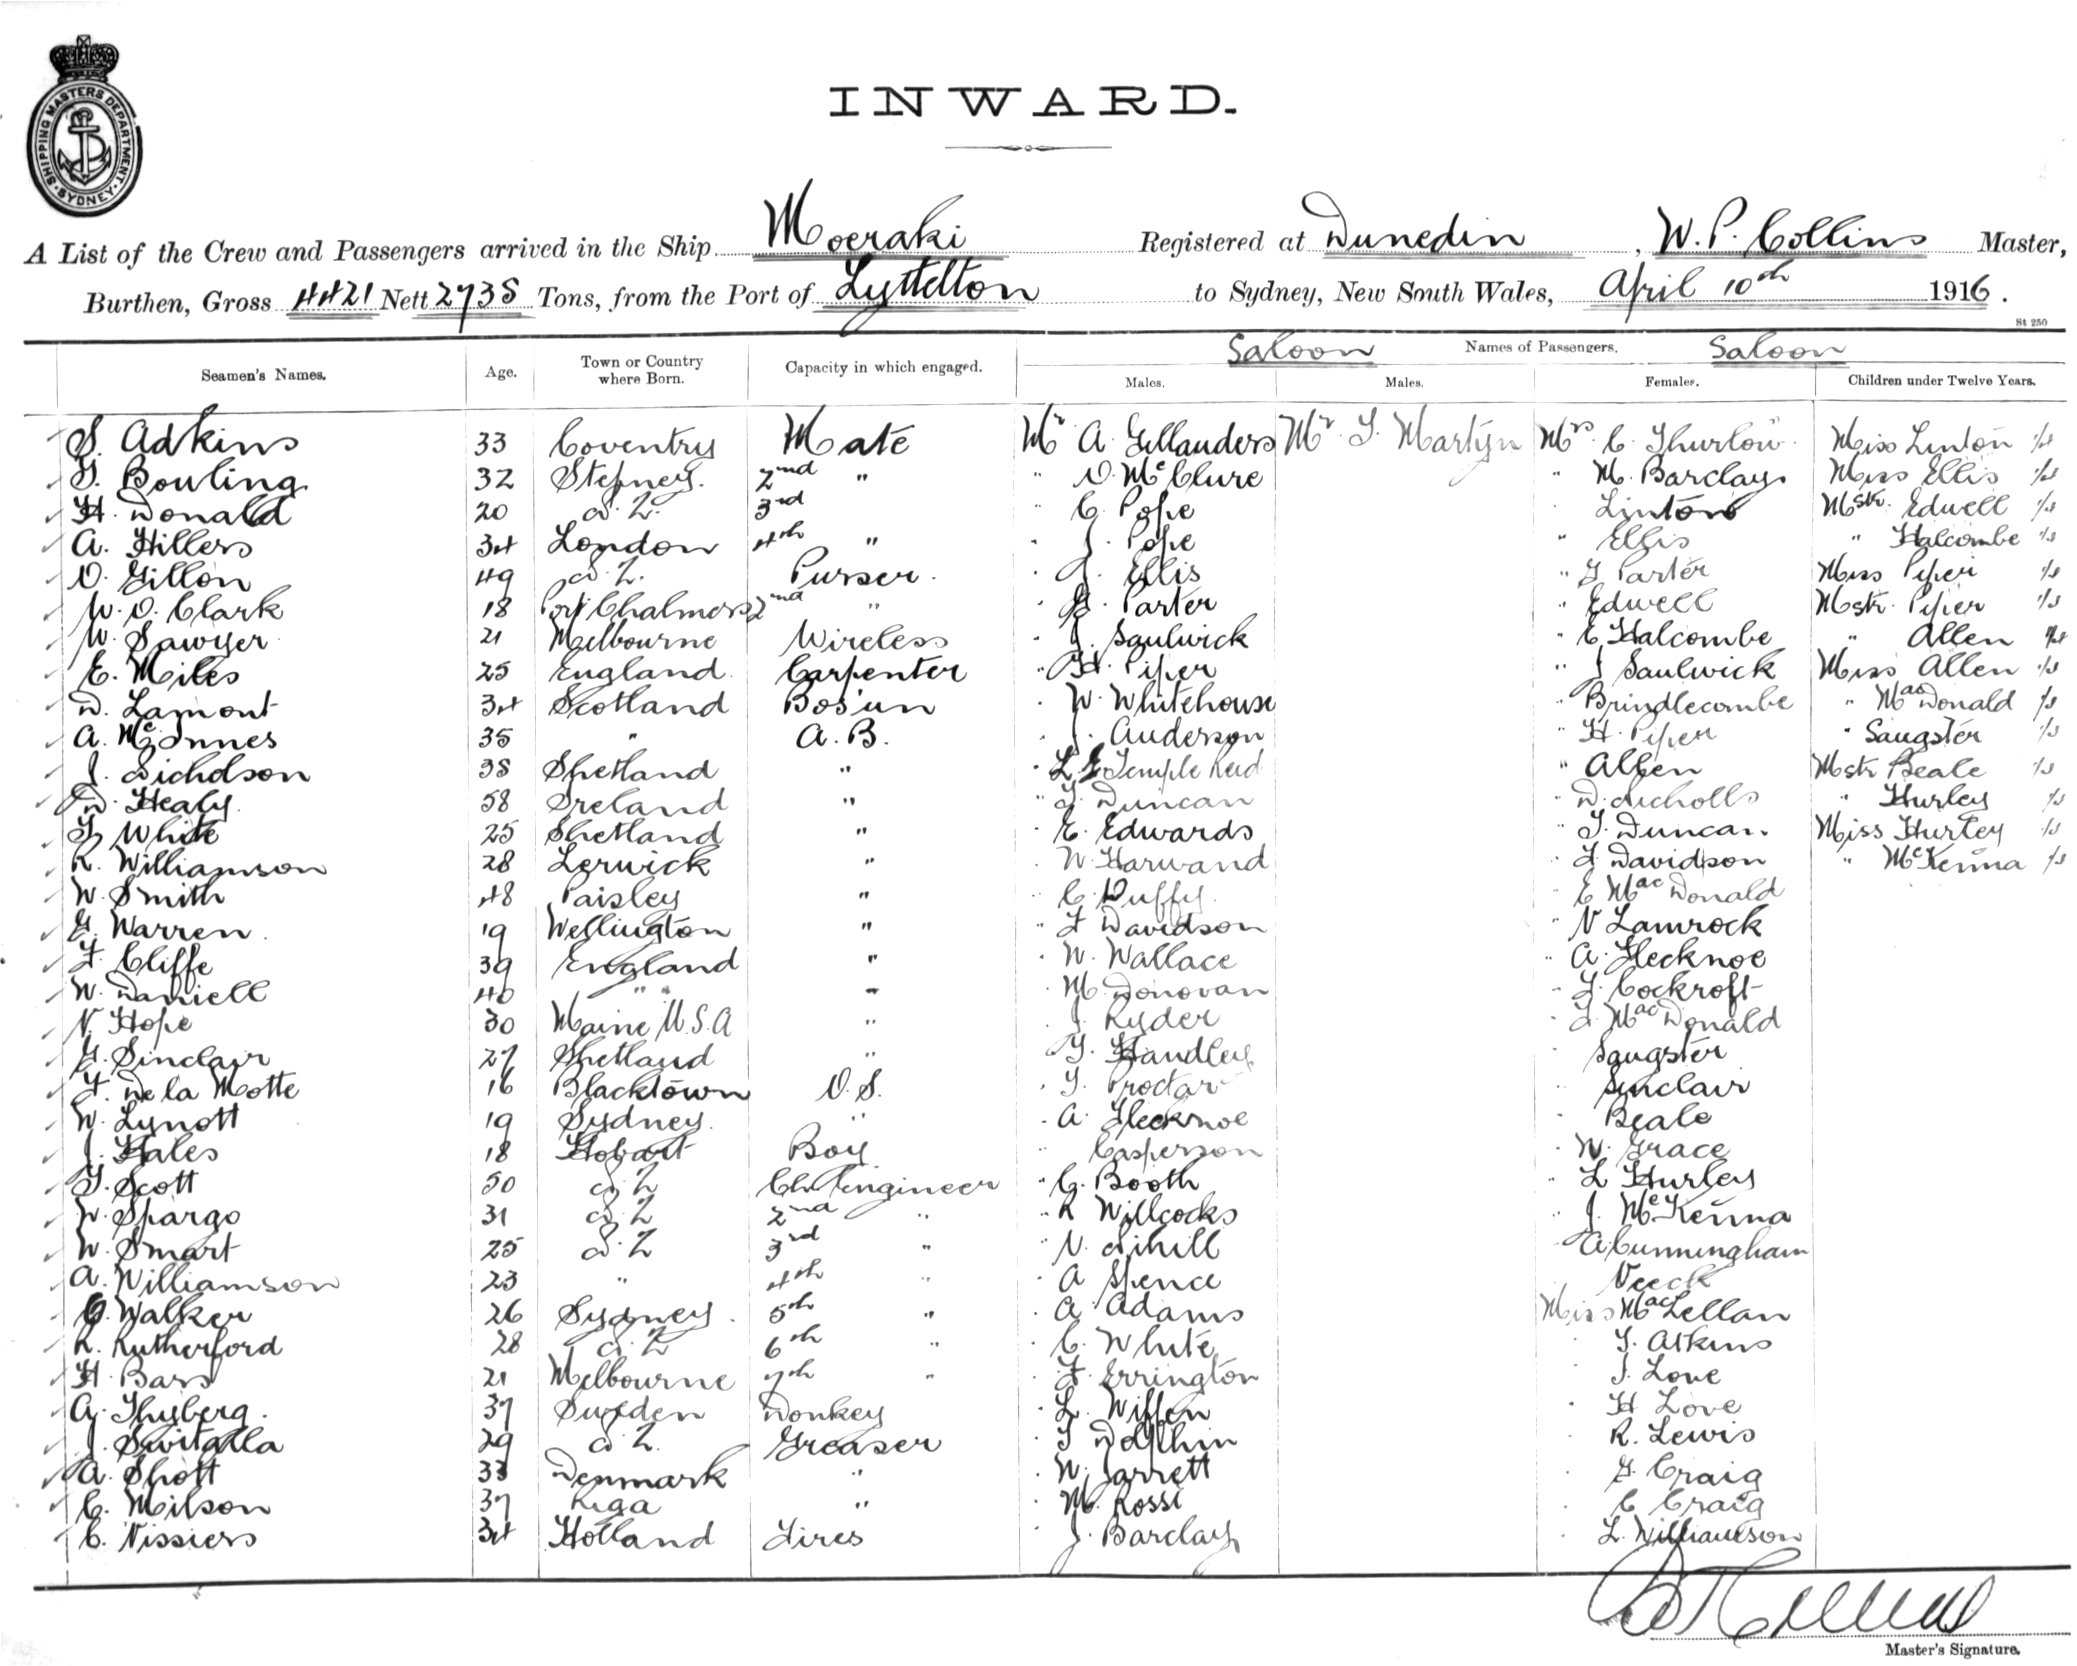 SHIPPING MASTERS DEPARTMENT
SYDNEY
INWARD.
A List of the Crew and Passengers arrived in the Ship Moeraki Registered at Dunedin, W. P. Collins Master,
Burthen, Gross 4421 Nett 2738 Tons, from the Port of Lyttelton to Sydney, New South Wales, April 10th 1916.
St 250
Saloon Names of Passengers. Saloon
Seamen's Names. Age. Town or Country where Born. Capacity in which engaged. Males. Males. Females. Children under Twelve Years.
S. Adkins 33 Coventry Mate Mr A. Gillanders Mr. T. Martyn Mrs. C. Thurlow Miss Linton
G. Bowling 32 Stepney. 2nd " " D. McClure " M. Barclay Miss Ellis
H. Donald 20 N.Z. 3rd " C. Pope Linton Mstr. Edwell
A. Hillers 34 London 4th " " J. Pope " Ellis " Halcombe
D. Gillon 49 N.Z. Purser. " J. Ellis " G Parter Miss Piper
W. D. Clark 18 Port Chalmers 2nd " " G. Parter " Edwell Mstr. Piper
W. Sawyer 21 Melbourne Wireless " J. Saulwick " E Halcombe " Allen
E. Miles 25 England Carpenter " H. Piper " J Saulwick Miss Allen
D. Lamont 34 Scotland Bos'un " W. Whitehouse " Brindlecombe " MacDonald
A. McInnes 35 " A.B. " J. Anderson " H. Piper " Sangster
J. Nicholson 38 Shetland " " L G Temple Reid " Allen Mstr Beale
D. Healy 58 Ireland " " T. Duncan " D. Nicholls " Hurley
T. White 25 Shetland " " E. Edwards " T. Duncan Miss Hurley
R. Williamson 28 Lerwick " " W. Harwand " F Davidson " McKenna
W. Smith 48 Paisley " " C. Duffy " E MacDonald
G. Warren 19 Wellington " " F Davidson " N Lamrock
F. Cliffe 39 England " " W. Wallace " A. Flecknoe
W. Daniell 40 " " " " M. Donovan " F. Cockroft
N. Hope 30 Maine U.S.A " " J. Ryder " F. MacDonald
G. Sinclair 27 Shetland " " G. Handley " Sangster
F. De la Motte 16 Blacktown O.S. " T. Proctar " Sinclair
W. Lynott 19 Sydney. " " A. Flecknoe " Beale
J. Hales 18 Hobart Boy " Casperson " W. Grace
T. Scott 50 N.Z Ch. Engineer " C. Booth " L Hurley
W. Spargo 31 N.Z 2nd " " R Willcocks " J. McKenna
W. Smart 25 N.Z 3rd " " N. Nihill " A Cunningham
A. Williamson 23 " 4th " " A Spence Veeck
C. Walker 26 Sydney. 5th " " A. Adams Miss MacLellan
R. Rutherford 28 N.Z 6th " " C. White " T. Atkins
H. Bars 21 Melbourne 7th " " F. Errington " J. Love
A. Thyberg. 37 Sweden Donkey " L. Wiffen " H Love
J. Switalla 29 N.Z. Greaser " T Dolphin " R. Lewis
A. Shott 33 Denmark " " W. Jarrett " G. Craig
C. Milson 37 Riga " " M. Rossi " C Craig
C. Nissiers 34 Holland Fires " J. Barclay " L. Williamson
Master's Signature.